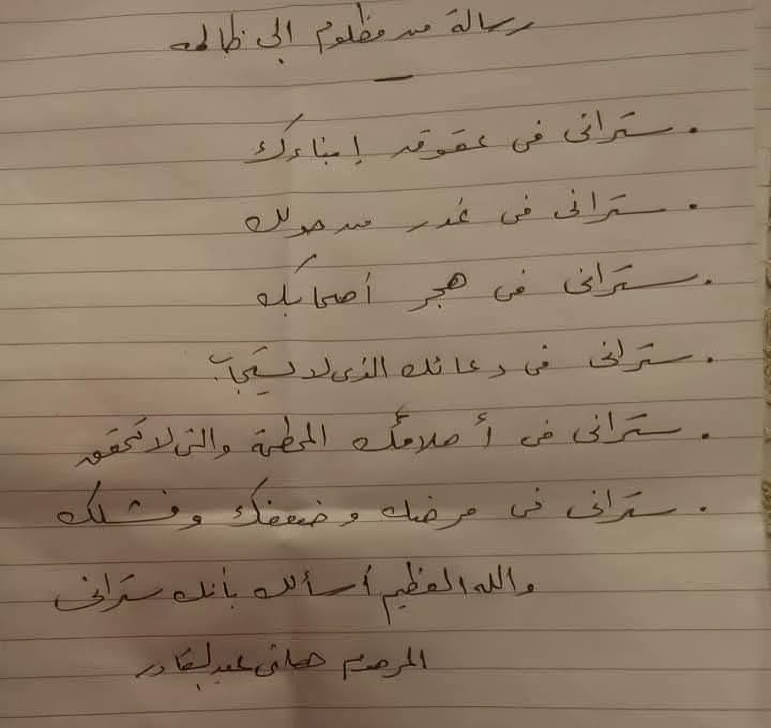 رسالة من مظلوم الى ظالمه
. ستراني في عقوق إبناءك
. ستراني في غدر من حولك
. ستراني في هجر أصحابك
. ستراني في دعائك الذى لا يستجاب
. ستراني في أحلامك المحطمة والتى لا تتحقق
. ستراني في مرضك وضعفك وفشلك
والله العظيم أسألك بأنك ستراني
المرحوم هانى عبد القادر